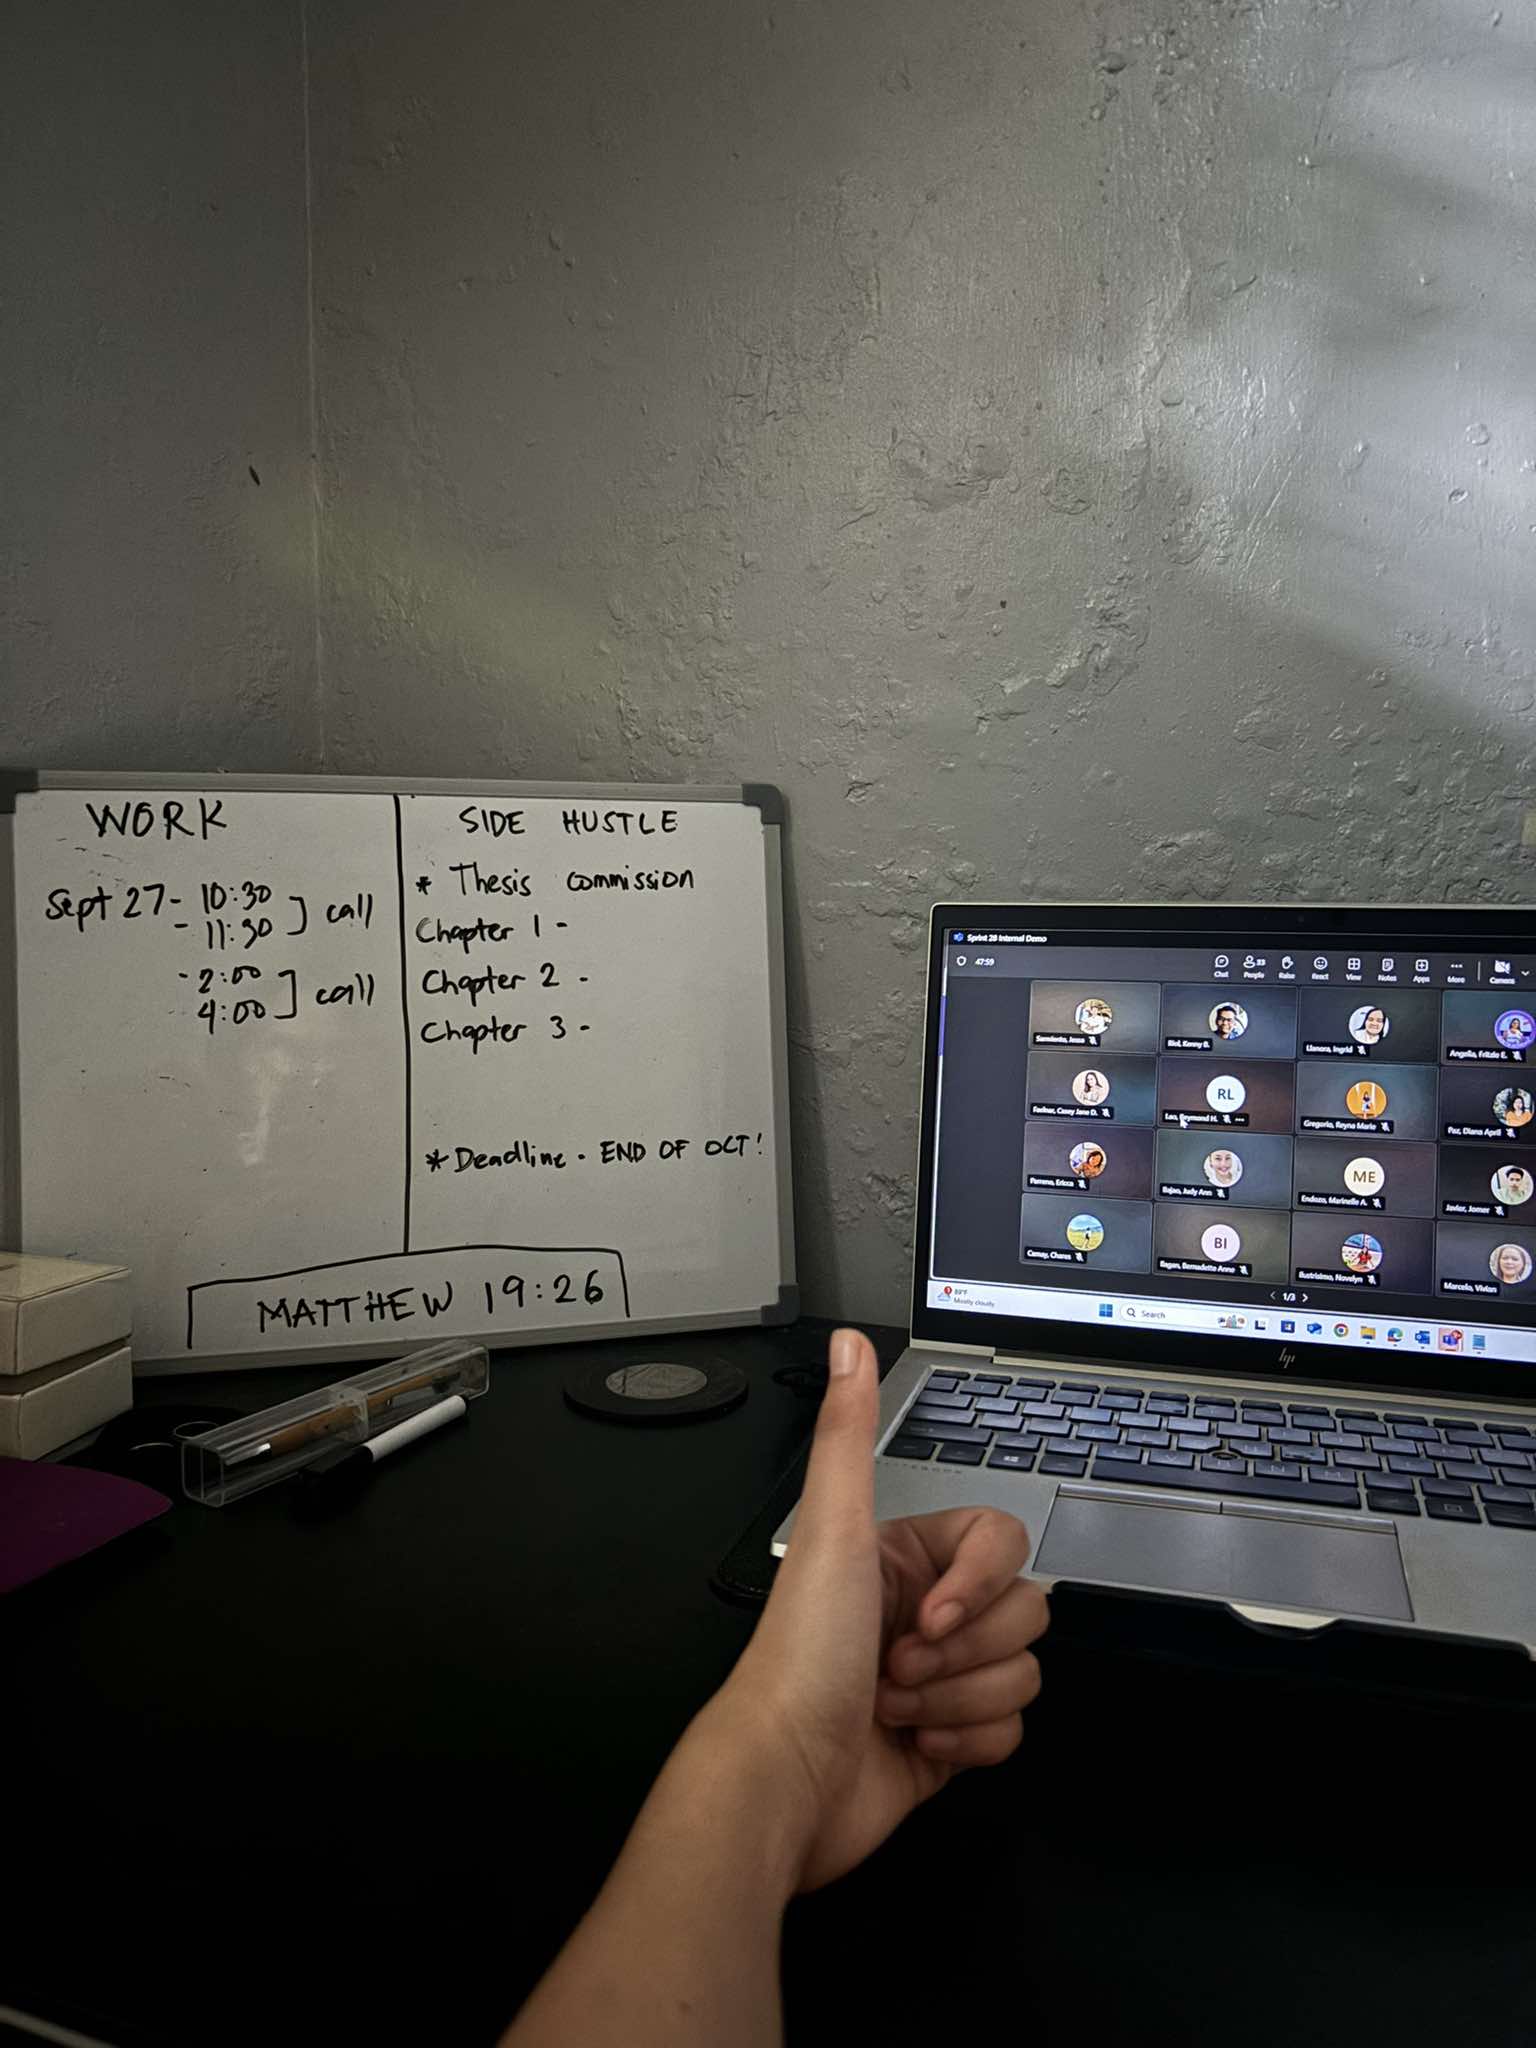 WORK
Sept 27 - 10:30
- 11:30 ] call
- 2:00
4:00 ] call
SIDE HUSTLE
* Thesis commission
Chapter 1 -
Chapter 2 -
Chapter 3 -
* Deadline - END OF OCT!
MATTHEW 19:26
Sprint 28 Internal Demo
47:59
33
Chat People Raise React View Notes Apps More Camera
Sarmiento, Jessa
Biol, Kenny B.
Llanora, Ingrid
Angella, Fritzie E.
Casey Jane D.
RL
Lao, Reymond H.
Gregorio, Reyna Marie
Paz, Diana April
Parreno, Ericca
Bajao, Judy Ann
ME
Endozo, Marinelle A.
Javier, Jomer
Chares
BI
Bagan, Bernadette Anne
Bustrisimo, Novelyn
Marcelo, Vivian
1/3
89°F
Mostly cloudy
Search
hp